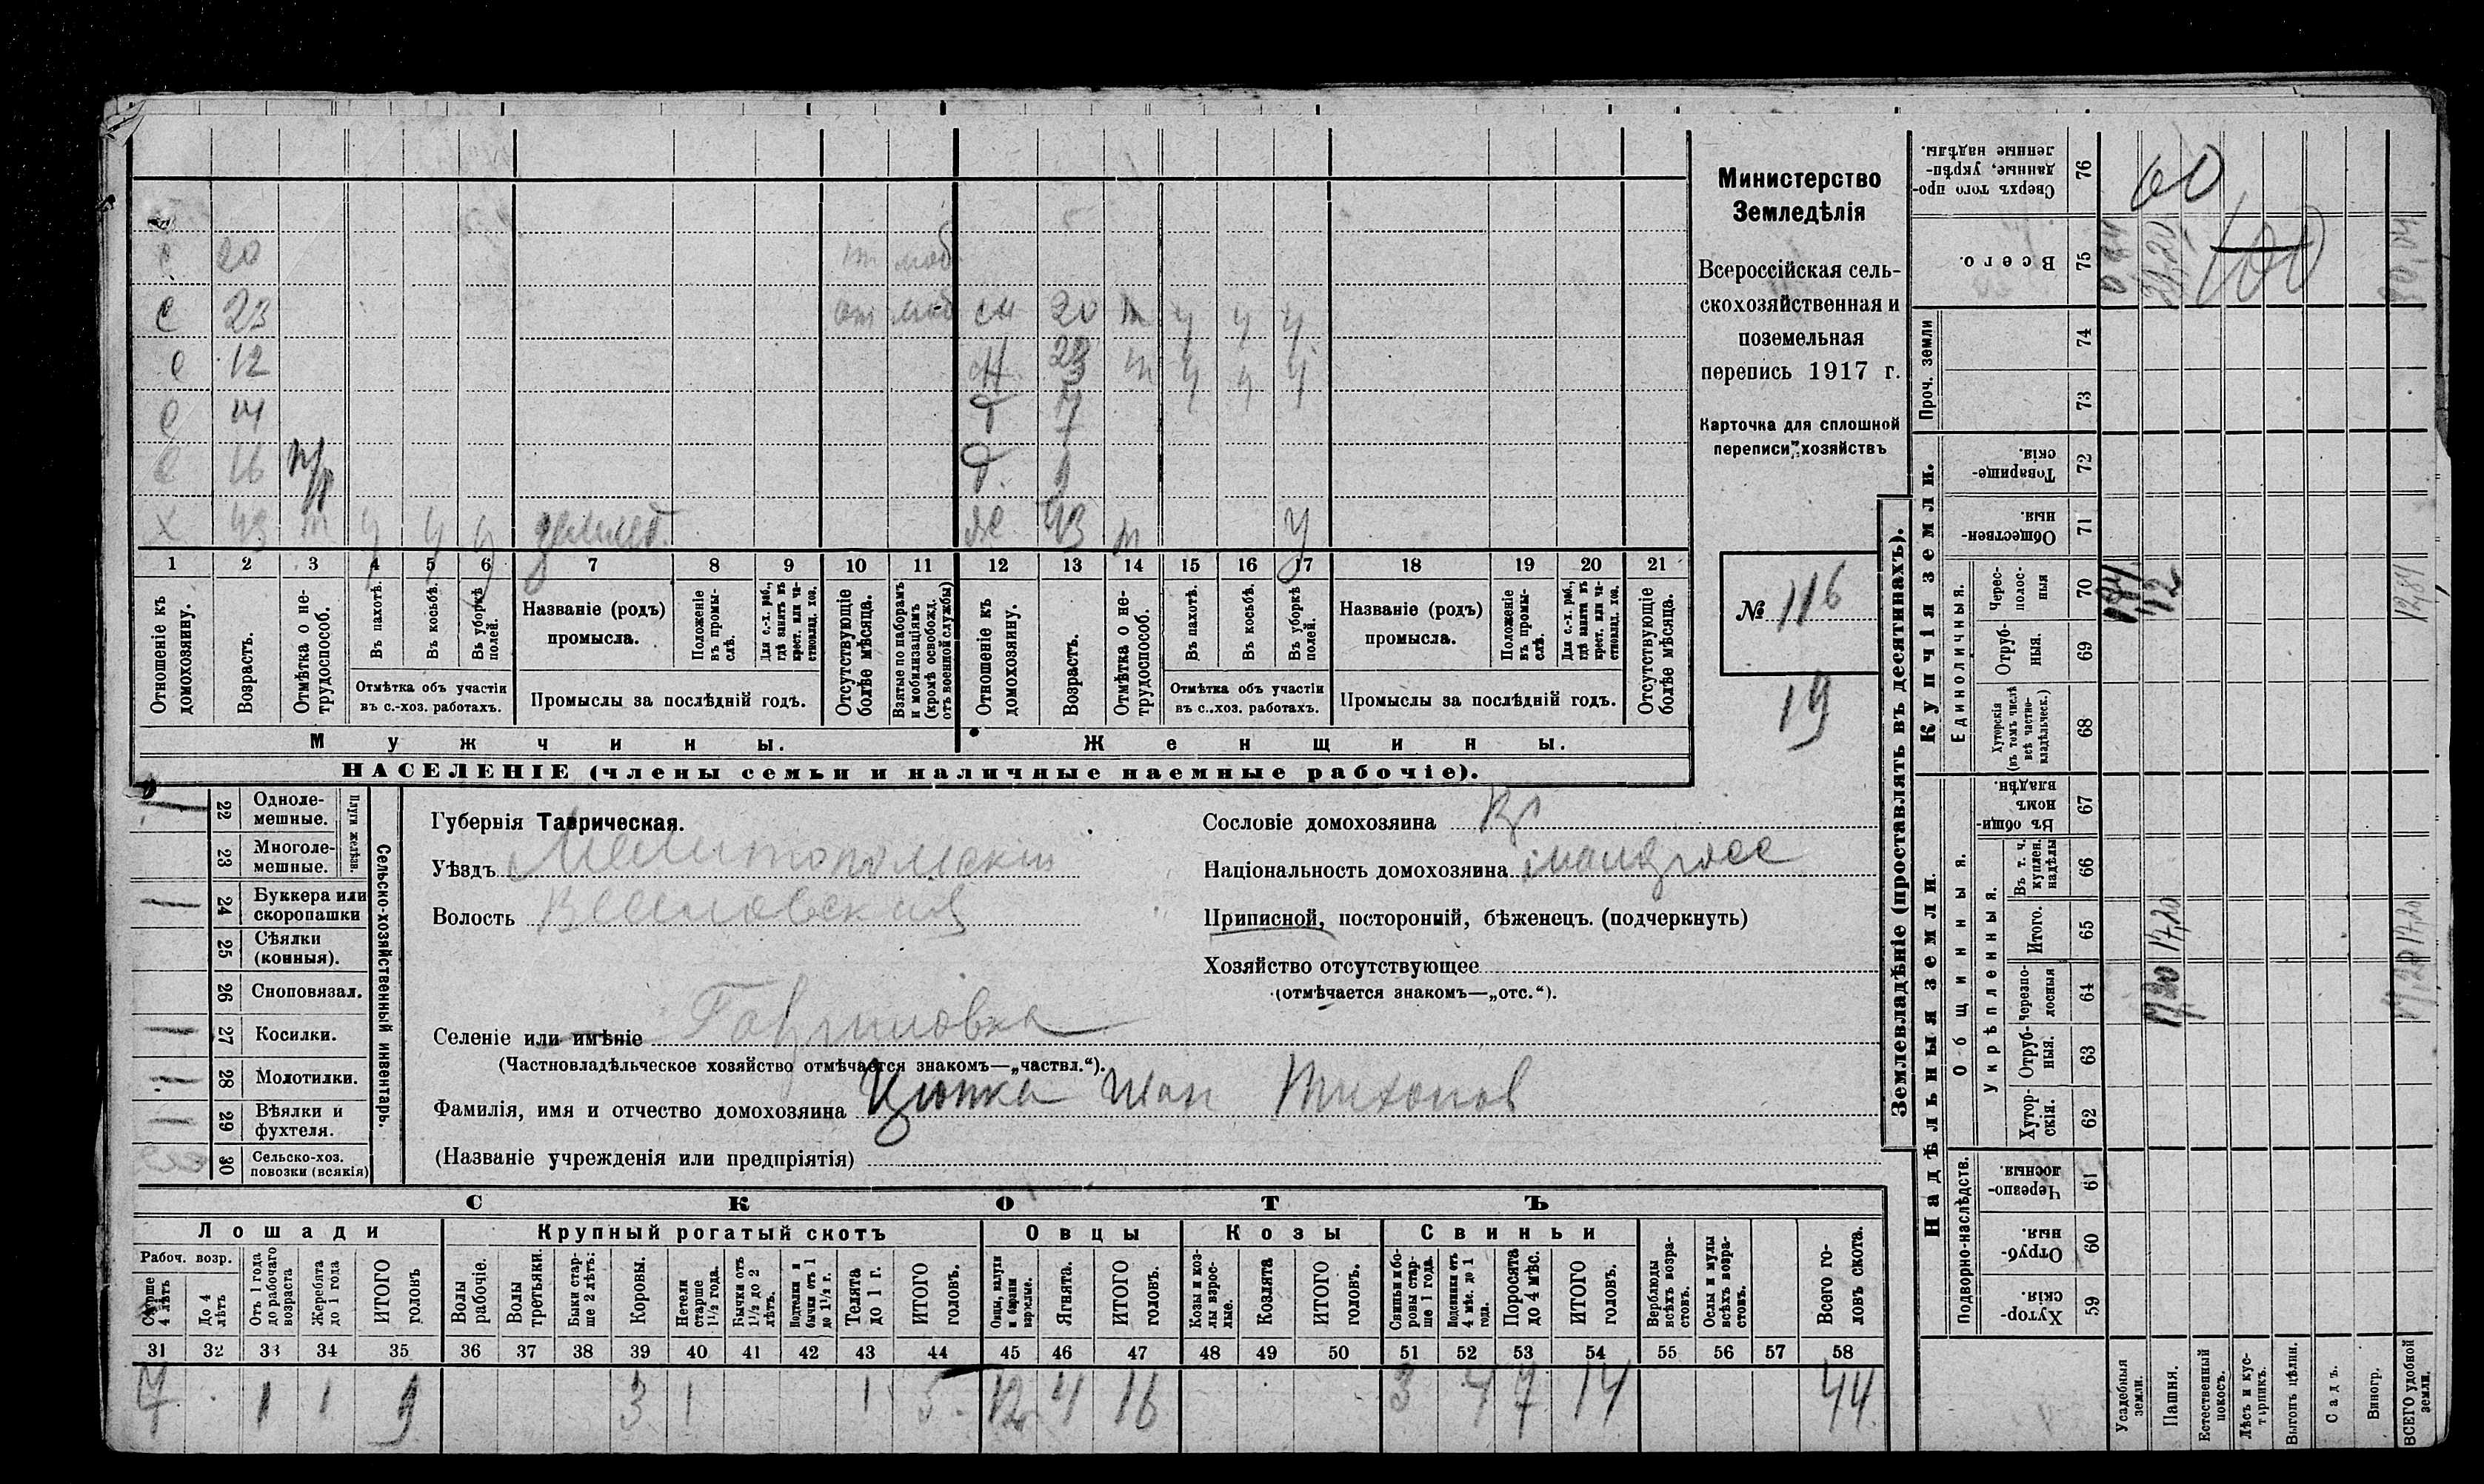 с 20 от моб
с 23 от моб сн 20 т ч ч ч
с 12 23 т ч ч ч
с 14 Т 7
с 16 н/р Т. 1
х 43 т ч ч ч землед. ж 43 т ч
1 2 3 4 5 6 7 8 9 10 11 12 13 14 15 16 17 18 19 20 21
Отношеніе къ домохозяину.
Возрастъ.
Отмѣтка о не-
трудоспособ.
Въ пахотѣ.
Въ косьбѣ.
Въ уборкѣ полей.
Отмѣтка объ участіи
въ с.-хоз. работахъ.
Названіе (родъ)
промысла.
Положеніе
въ промы-
слѣ.
Для с.-х. раб.,
гдѣ занятъ въ
крест. или ча-
стновлад. хоз.
Промыслы за послѣдній годъ.
Отсутствующіе
болѣе мѣсяца.
Взятые по наборамъ
и мобилизаціямъ
(кромѣ освобожд.
отъ военной службы)
Отношеніе къ
домохозяину.
Возрастъ.
Отмѣтка о не-
трудоспособ.
Въ пахотѣ.
Въ косьбѣ.
Въ уборкѣ
полей.
Отмѣтка объ участіи
въ с..хоз. работахъ.
Названіе (родъ)
промысла.
Положеніе
въ промы-
слѣ.
Для с.-х. раб.,
гдѣ занята въ
крест. или ча-
стновлад. хоз.
Промыслы за послѣдній годъ.
Отсутствующіе
болѣе мѣсяца.
Мужчины.
Женщины.
НАСЕЛЕНІЕ (члены семьи и наличные наемные рабочіе).
Министерство
Земледѣлія
Всероссійская сель-
скохозяйственная и
поземельная
перепись 1917 г.
Карточка для сплошной
переписи хозяйствъ
№ 116
19
22 Одноле-
мешные.
23 Многоле-
мешные.
Плуги желѣзн.
24 Буккера или
скоропашки
25 Сѣялки
(конныя).
26 Сноповязал.
27 Косилки.
28 Молотилки.
29 Вѣялки и
фухтеля.
30 Сельско-хоз.
повозки (всякія)
Сельско-хозяйственный инвентарь.
Губернія Таврическая.
Уѣздъ Мелитопольскій
Волость Веселовская
Селеніе или имѣніе Гавриловка
(Частновладѣльческое хозяйство отмѣчается знакомъ—„частвл.“).
Фамилія, имя и отчество домохозяина Цюпка Иван Тихонов
(Названіе учрежденія или предпріятія)
Сословіе домохозяина Кр
Національность домохозяина малоросс
Приписной, посторонній, бѣженецъ. (подчеркнуть)
Хозяйство отсутствующее
(отмѣчается знакомъ—„отс.“).
СКОТЪ
Лошади Крупный рогатый скотъ Овцы Козы Свиньи
Рабоч. возр.
Старше
4 лѣтъ
До 4
лѣтъ
Отъ 1 года
до рабочаго
возраста
Жеребята
до 1 года
ИТОГО
головъ
Волы
рабочіе.
Волы
третьяки.
Быки стар-
ше 2 лѣтъ.
Коровы.
Нетели
старше
1½ года.
Бычки отъ
1½ до 2
лѣтъ.
Нетелки и
бычки отъ 1
до 1½ г.
Телята
до 1 г.
ИТОГО
головъ.
Овцы, валухи
и бараны
взрослые.
Ягнята.
ИТОГО
головъ.
Козы и коз-
лы взрос-
лые.
Козлята
ИТОГО
головъ.
Свиньи и бо-
ровы стар-
ше 1 года.
Подсвинки отъ
4 мѣс. до 1
года.
Поросята
до 4 мѣс.
ИТОГО
головъ.
Верблюды
всѣхъ возра-
стовъ.
Ослы и мулы
всѣхъ возра-
стовъ.
Всего го-
ловъ скота.
31 32 33 34 35 36 37 38 39 40 41 42 43 44 45 46 47 48 49 50 51 52 53 54 55 56 57 58
7 1 1 9 3 1 1 5 12 4 16 3 4 7 14 44
Землевладѣніе (проставлять въ десятинахъ).
Купчія земли.
Надѣльныя земли.
Сверхъ того про-
данные, укрѣп-
ленные надѣлы. 76
60
Всего. 75
24,20
100
Проч. земли
74
73
Товарище-
скія. 72
Обществен-
ныя. 71
Единоличныя.
Черес-
полос-
ныя 70
12
12,84
Отруб-
ныя. 69
Хуторскія
(въ томъ числѣ
всѣ частно-
владѣльческ.) 68
Общинныя.
Въ общин-
номъ
владѣн. 67
Укрѣпленныя.
Въ т. ч.
куплен.
надѣлы 66
Итого. 65
17,20
17,20
Черезпо-
лосныя 64
17,20
17,20
Отруб-
ныя. 63
Хутор-
скія. 62
Подворно-наслѣдств.
Черезпо-
лосныя. 61
Отруб-
ныя. 60
Хутор-
скія. 59
Усадебныя
земли.
Пашня.
Естественный
покосъ.
Лѣсъ и кус-
тарникъ.
Выгонъ цѣлин.
Садъ.
Виногр.
ВСЕГО удобной
земли.